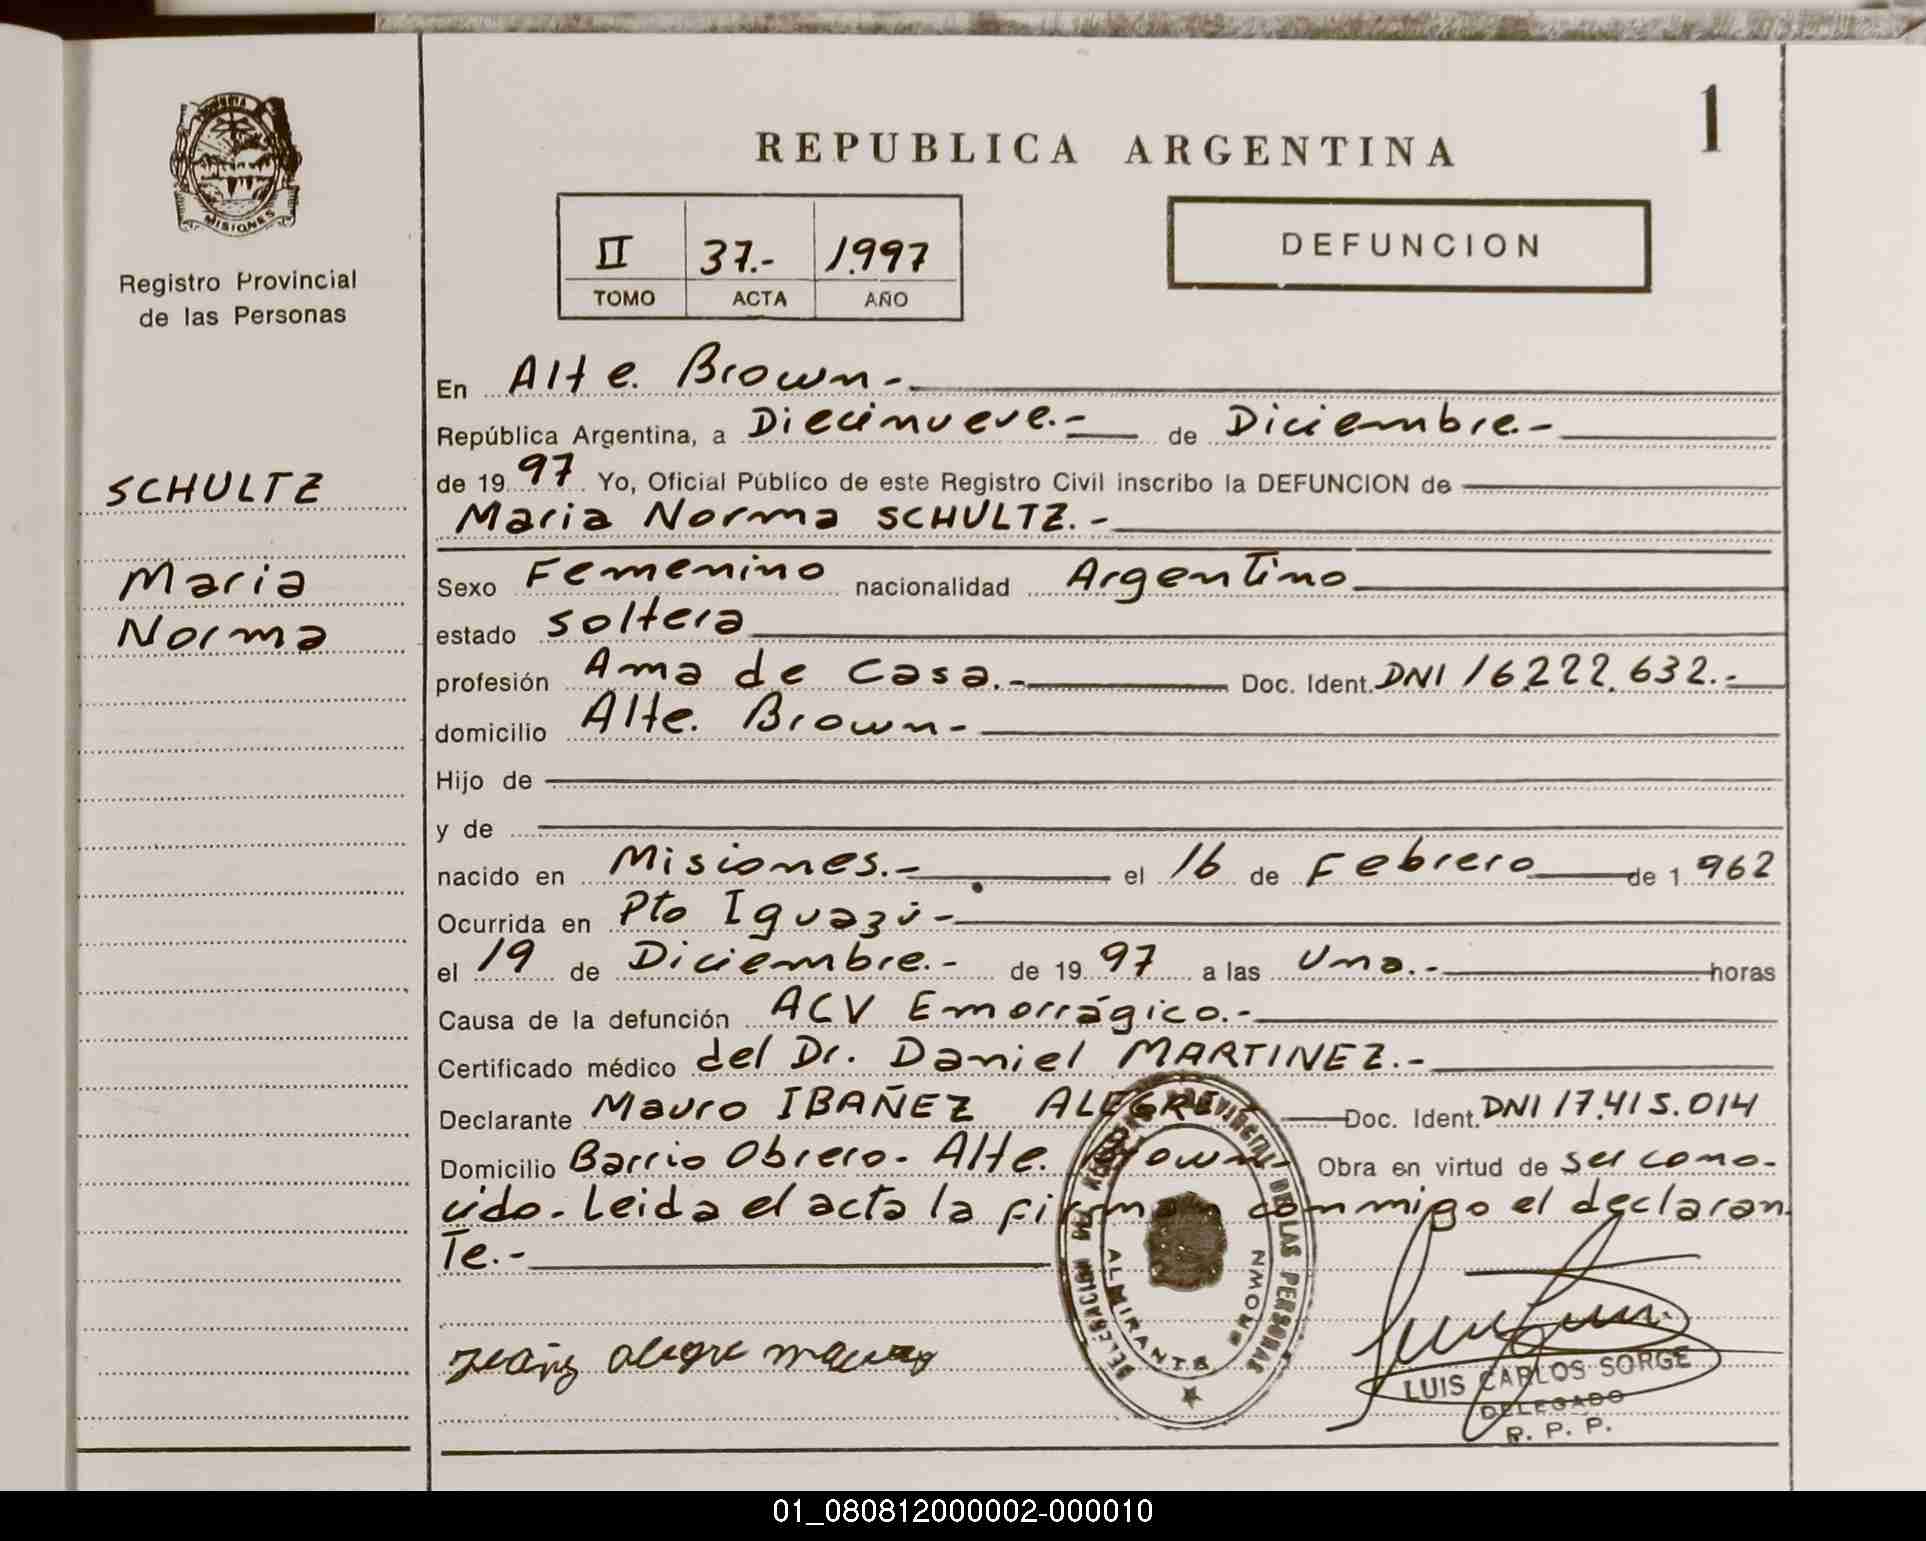 MISIONES
Registro Provincial
de las Personas
SCHULTZ
Maria
Norma
1
REPUBLICA ARGENTINA
II 37.- 1.997
TOMO ACTA AÑO
DEFUNCION
En Alte. Brown-
República Argentina, a Diecinueve.- de Diciembre.-
de 1997 Yo, Oficial Público de este Registro Civil inscribo la DEFUNCION de
Maria Norma SCHULTZ.-
Sexo Femenino nacionalidad Argentino
estado soltera
profesión Ama de Casa.- Doc. Ident. DNI 16.222.632.-
domicilio Alte. Brown-
Hijo de
y de
nacido en Misiones.- el 16 de Febrero de 1962
Ocurrida en Pto Iguazú-
el 19 de Diciembre.- de 1997 a las Una.- horas
Causa de la defunción ACV Emorrágico.-
Certificado médico del Dr. Daniel MARTINEZ.-
Declarante Mauro IBAÑEZ ALEGRE Doc. Ident. DNI 17.415.014
Domicilio Barrio Obrero- Alte. Brown- Obra en virtud de ser cono-
cido. Leida el acta la firma conmigo el declaran
Te.-
DELEGACION DE LAS PERSONAS
ALMIRANTE BROWN
alegre
LUIS CARLOS SORGE
DELEGADO
R. P. P.
01_080812000002-000010